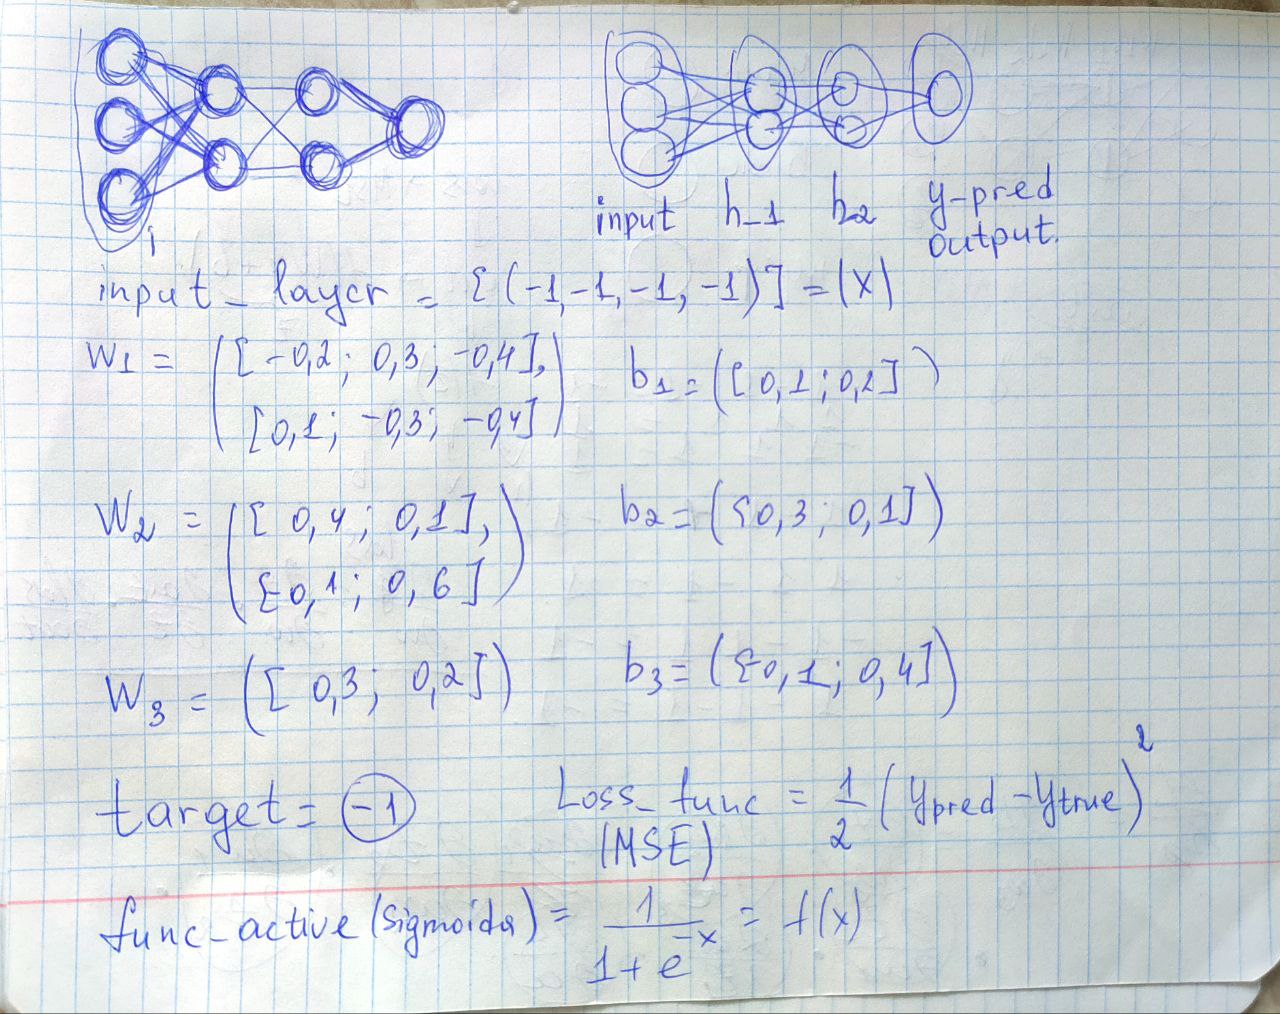 input h_1 h_2 y-pred
output.
input_layer = [(-1,-1,-1,-1)] = (x)
W1 = ([-0,2; 0,3; -0,4],
[0,1; -0,3; -0,4]) b1 = ([0,1; 0,2])
W2 = ([0,4; 0,1],
[0,1; 0,6]) b2 = ([0,3; 0,1])
W3 = ([0,3; 0,2]) b3 = ([0,1; 0,4])
target = -1 Loss_func = 1/2 (ypred - ytrue)^2
(MSE)
func_active (Sigmoida) = 1/(1+e^-x) = f(x)